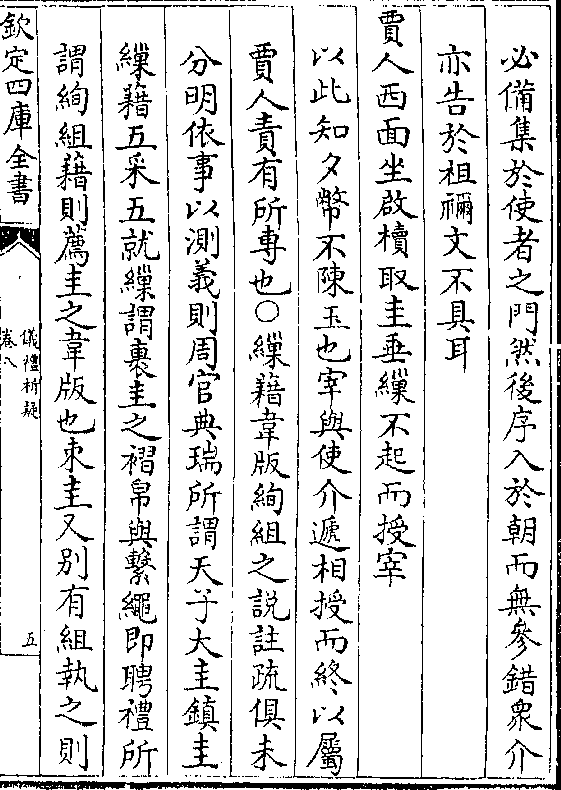 必備集於使者之門然後序入於朝而無參錯衆介
亦告於祖禰文不具耳
賈人西面坐啟櫝取圭垂繅不起而授宰
以此知夕幣不陳玉也宰與使介遞相授而終以屬
賈人責有所專也○繅藉韋版絢組之說註疏俱未
分明依事以測義則周官典瑞所謂天子大圭鎮圭
繅藉五采五就繅謂裹圭之褶帛與繫繩即聘禮所
謂絢組藉則薦圭之韋版也朿圭又別有組執之則
欽定四庫全書
儀禮析疑
卷八
五